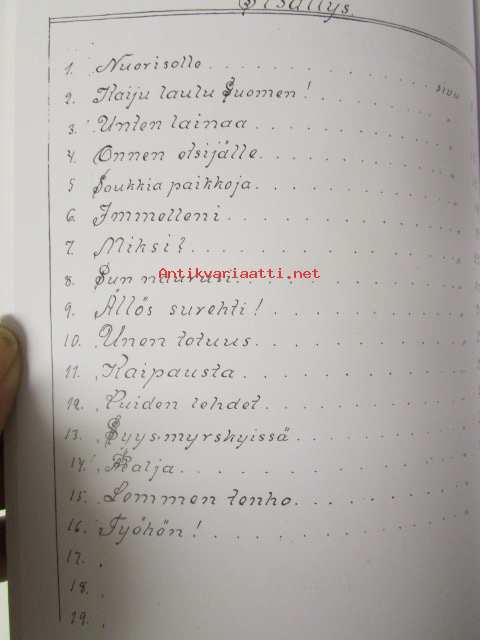 Sisällys.
sivu
1. Nuorisolle
2. Kaiju laulu Suomen!
3. Unten lainaa
4. Onnen etsijälle
5 Loukkia paikkoja
6. Immelleni
7. Miksi?
8. Sun naurusi
Antikvariaatti.net
9. Ällös surehti!
10. Unen totuus
11. Kaipausta
12. Puiden lehdet
13. Syysmyrskyissä
14. Malja
15. Lemmen tenho
16. Työhön!
17.
18.
19.